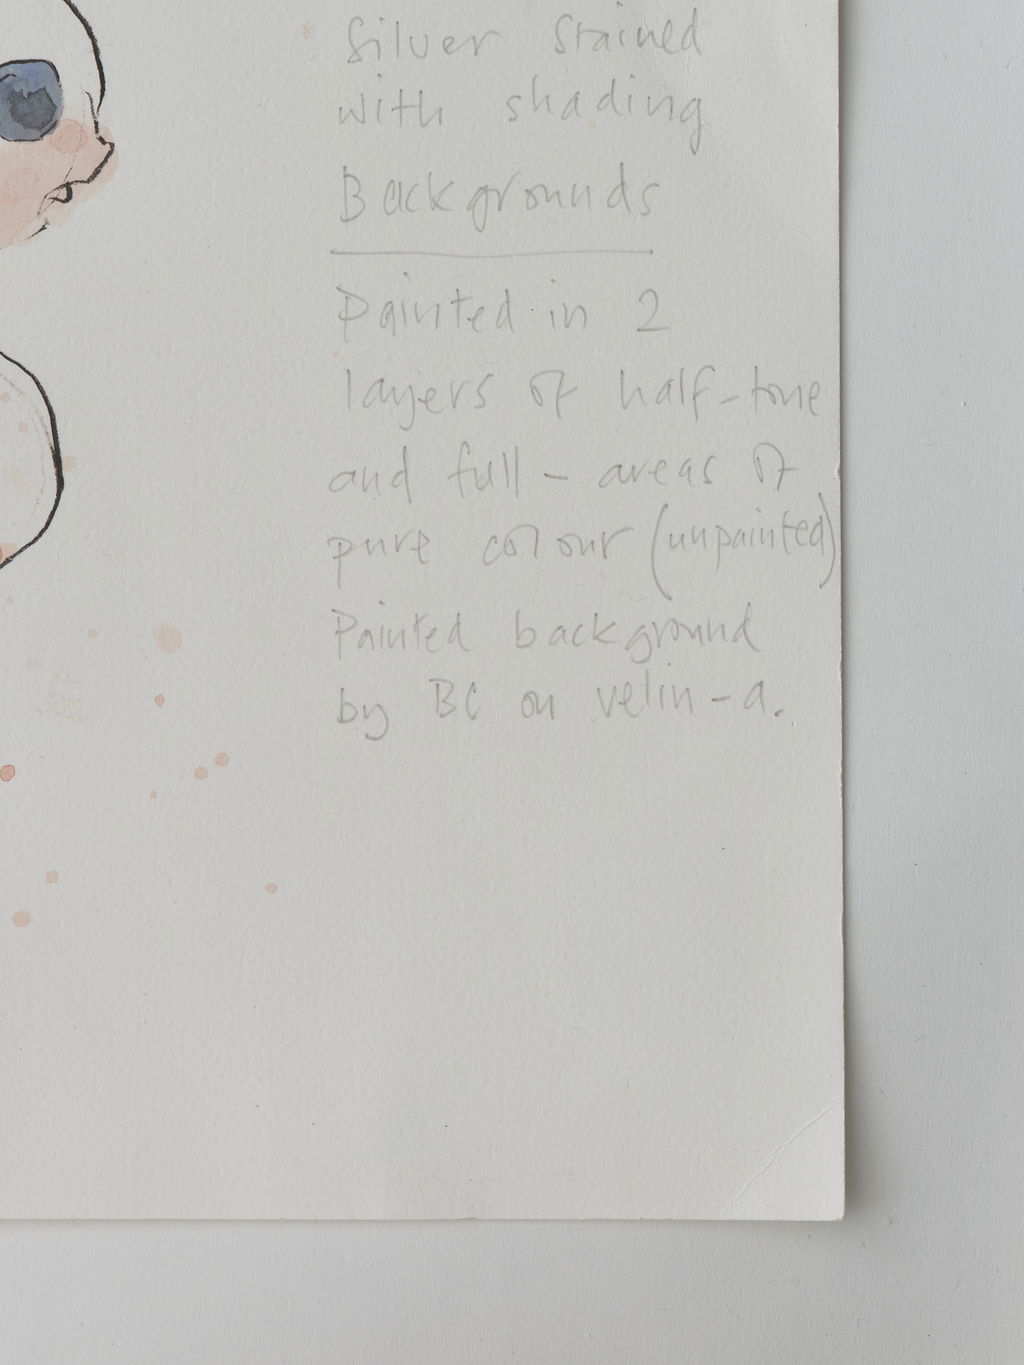 Silver Stained
with shading
Backgrounds
Painted in 2
layers of half-tone
and full - areas of
pure colour (unpainted)
Painted background
by BC on velin-a.